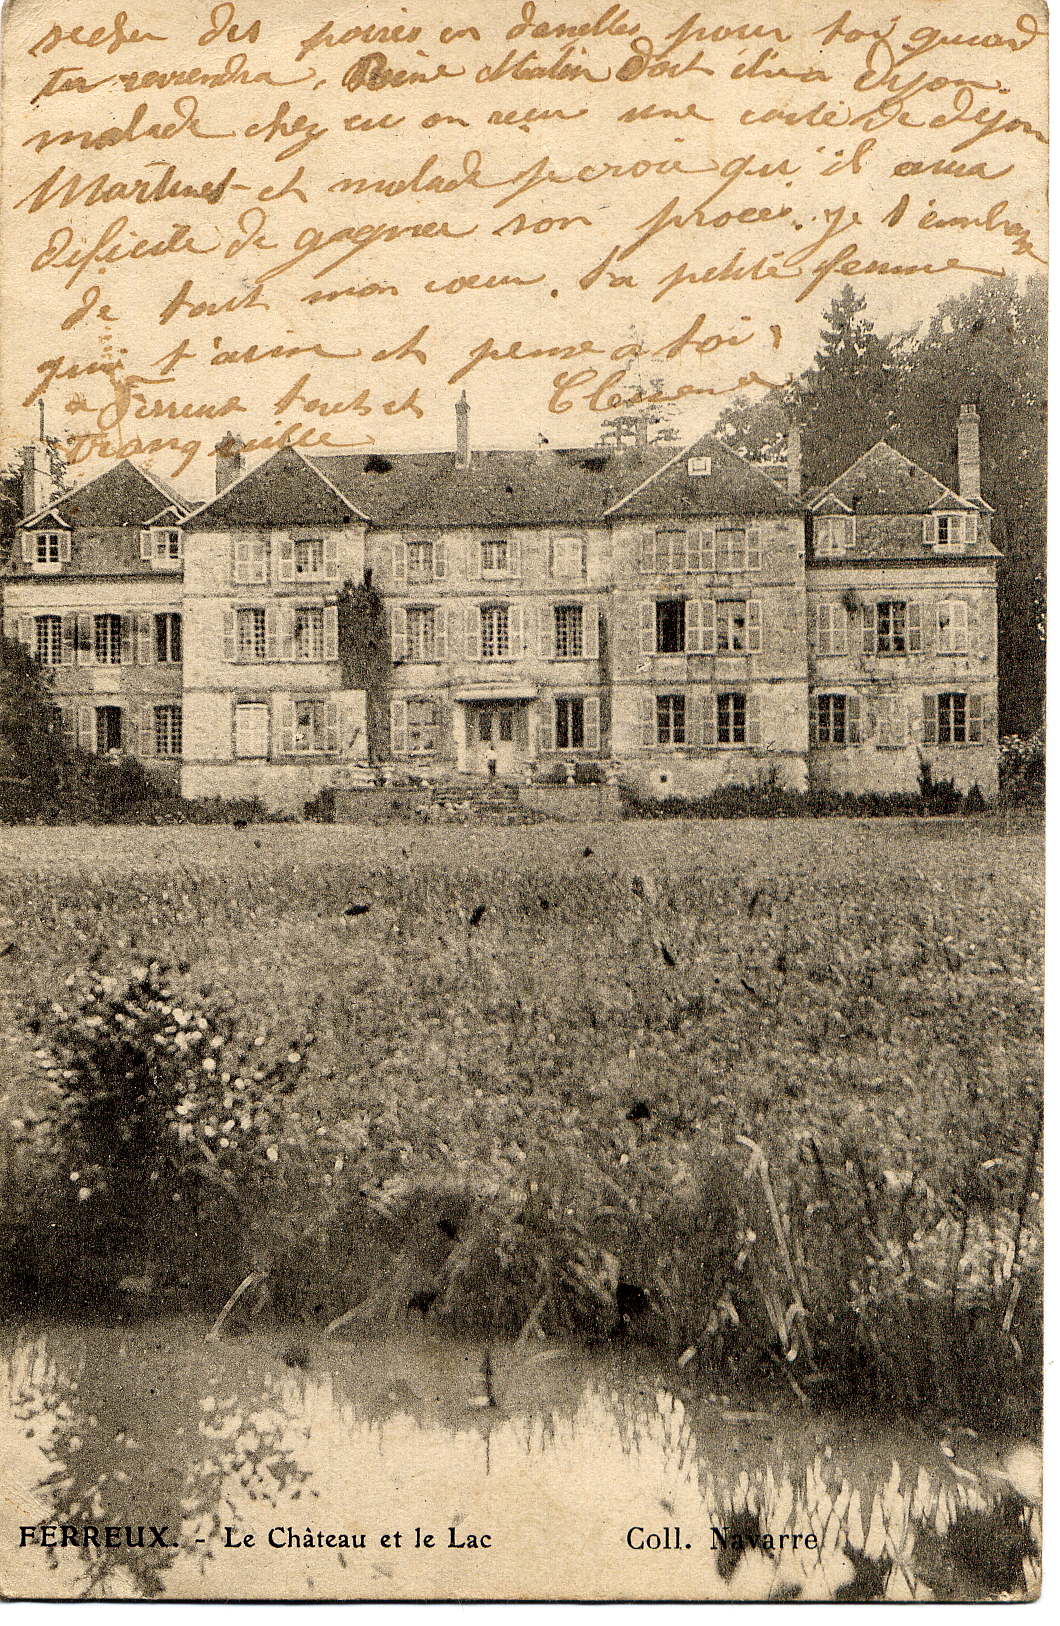 secher des poires en danelles pour toi quand
tu reviendra. Reine Matin doit être a Dijon.
malade chez eu on reçu une carte de Dijon
Martinet et malade je croie qu'il aura
dificile de gagner son procès. je t'embrasse
de tout mon coeur. ta petite femme
qui t'aime et pense a toi
a Ferreux tout et
tranquille
FERREUX. - Le Château et le Lac Coll. Navarre